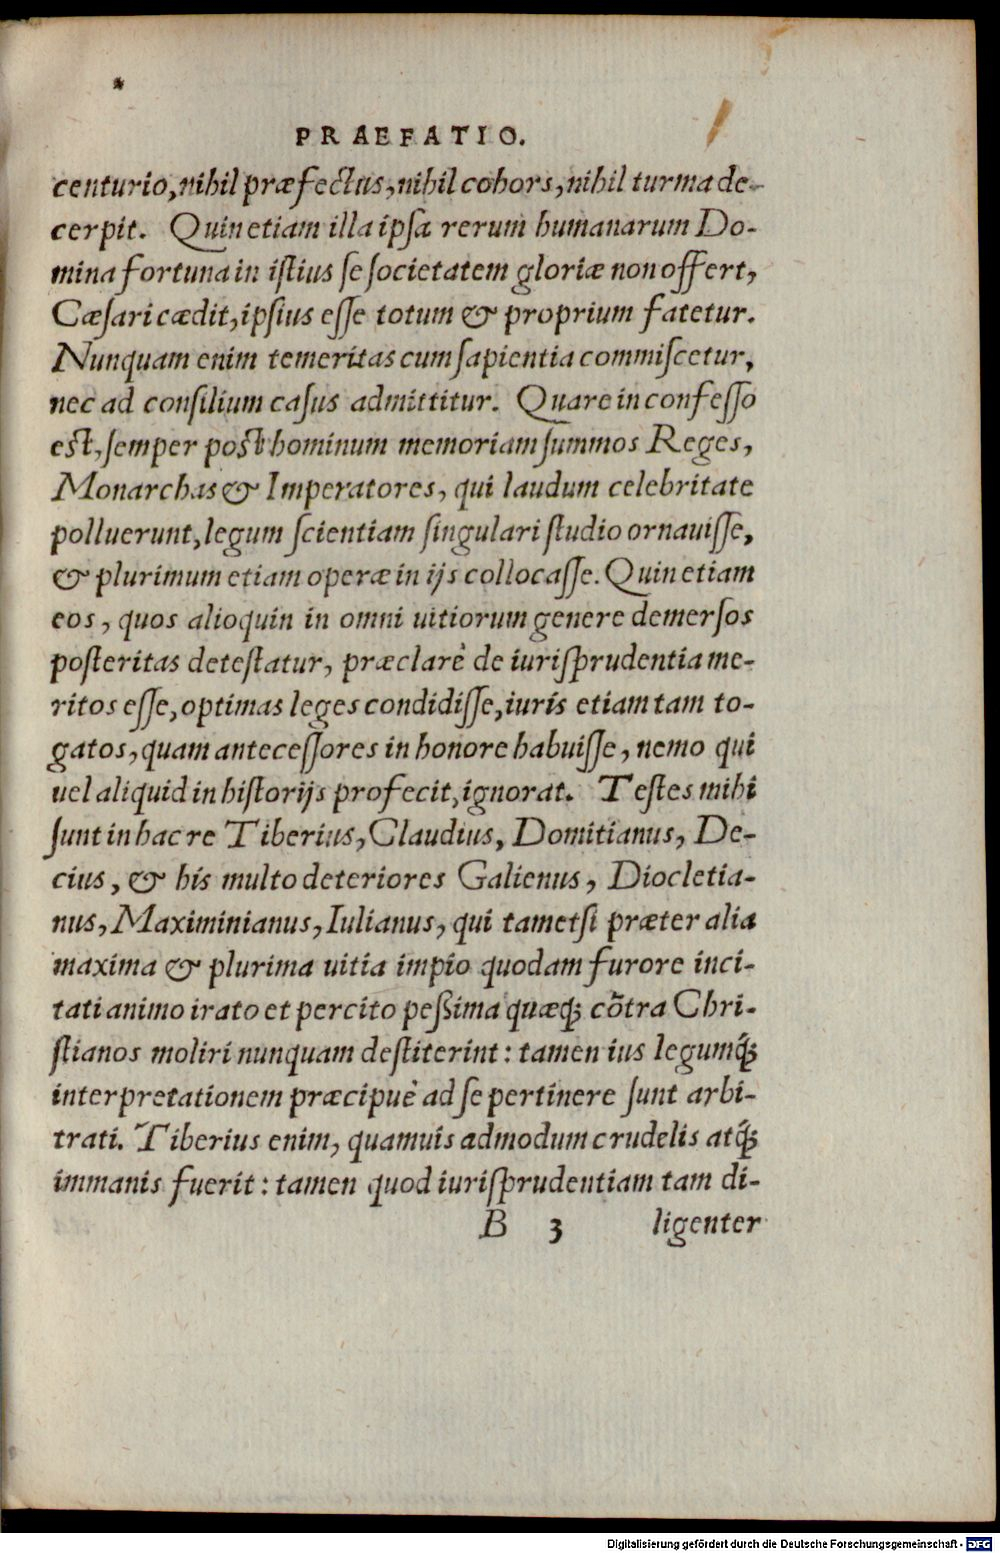 PRAEFATIO.
centurio, nihil præfectus, nihil cohors, nihil turma de-
cerpit. Quin etiam illa ipsa rerum humanarum Do-
mina fortuna in istius se societatem gloriæ non offert,
Cæsari cædit, ipsius esse totum & proprium fatetur.
Nunquam enim temeritas cum sapientia commiscetur,
nec ad consilium casus admittitur. Quare in confesso
est, semper post hominum memoriam summos Reges,
Monarchas & Imperatores, qui laudum celebritate
polluerunt, legum scientiam singulari studio ornauisse,
& plurimum etiam operæ in ijs collocasse. Quin etiam
eos, quos alioquin in omni uitiorum genere demersos
posteritas detestatur, præclarè de iurisprudentia me-
ritos esse, optimas leges condidisse, iuris etiam tam to-
gatos, quam antecessores in honore habuisse, nemo qui
uel aliquid in historijs profecit, ignorat. Testes mihi
sunt in hac re Tiberius, Claudius, Domitianus, De-
cius, & his multo deteriores Galienus, Diocletia-
nus, Maximinianus, Iulianus, qui tametsi præter alia
maxima & plurima uitia impio quodam furore inci-
tati animo irato et percito peßima quæq; cõtra Chri-
stianos moliri nunquam destiterint: tamen ius legumq́;
interpretationem præcipuè ad se pertinere sunt arbi-
trati. Tiberius enim, quamuis admodum crudelis atq́;
immanis fuerit: tamen quod iurisprudentiam tam di-
B 3 ligenter
Digitalisierung gefördert durch die Deutsche Forschungsgemeinschaft - DFG